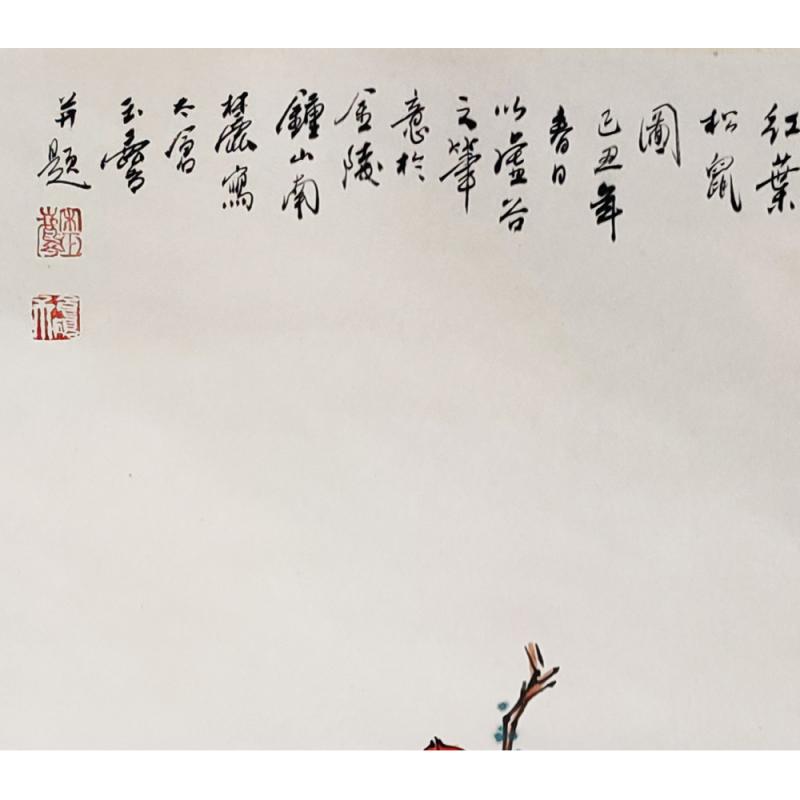 红葉
松鼠
圖
己丑年
春日
以虚谷
之筆
意於
金陵
鍾山南
麓寫
玉
并題